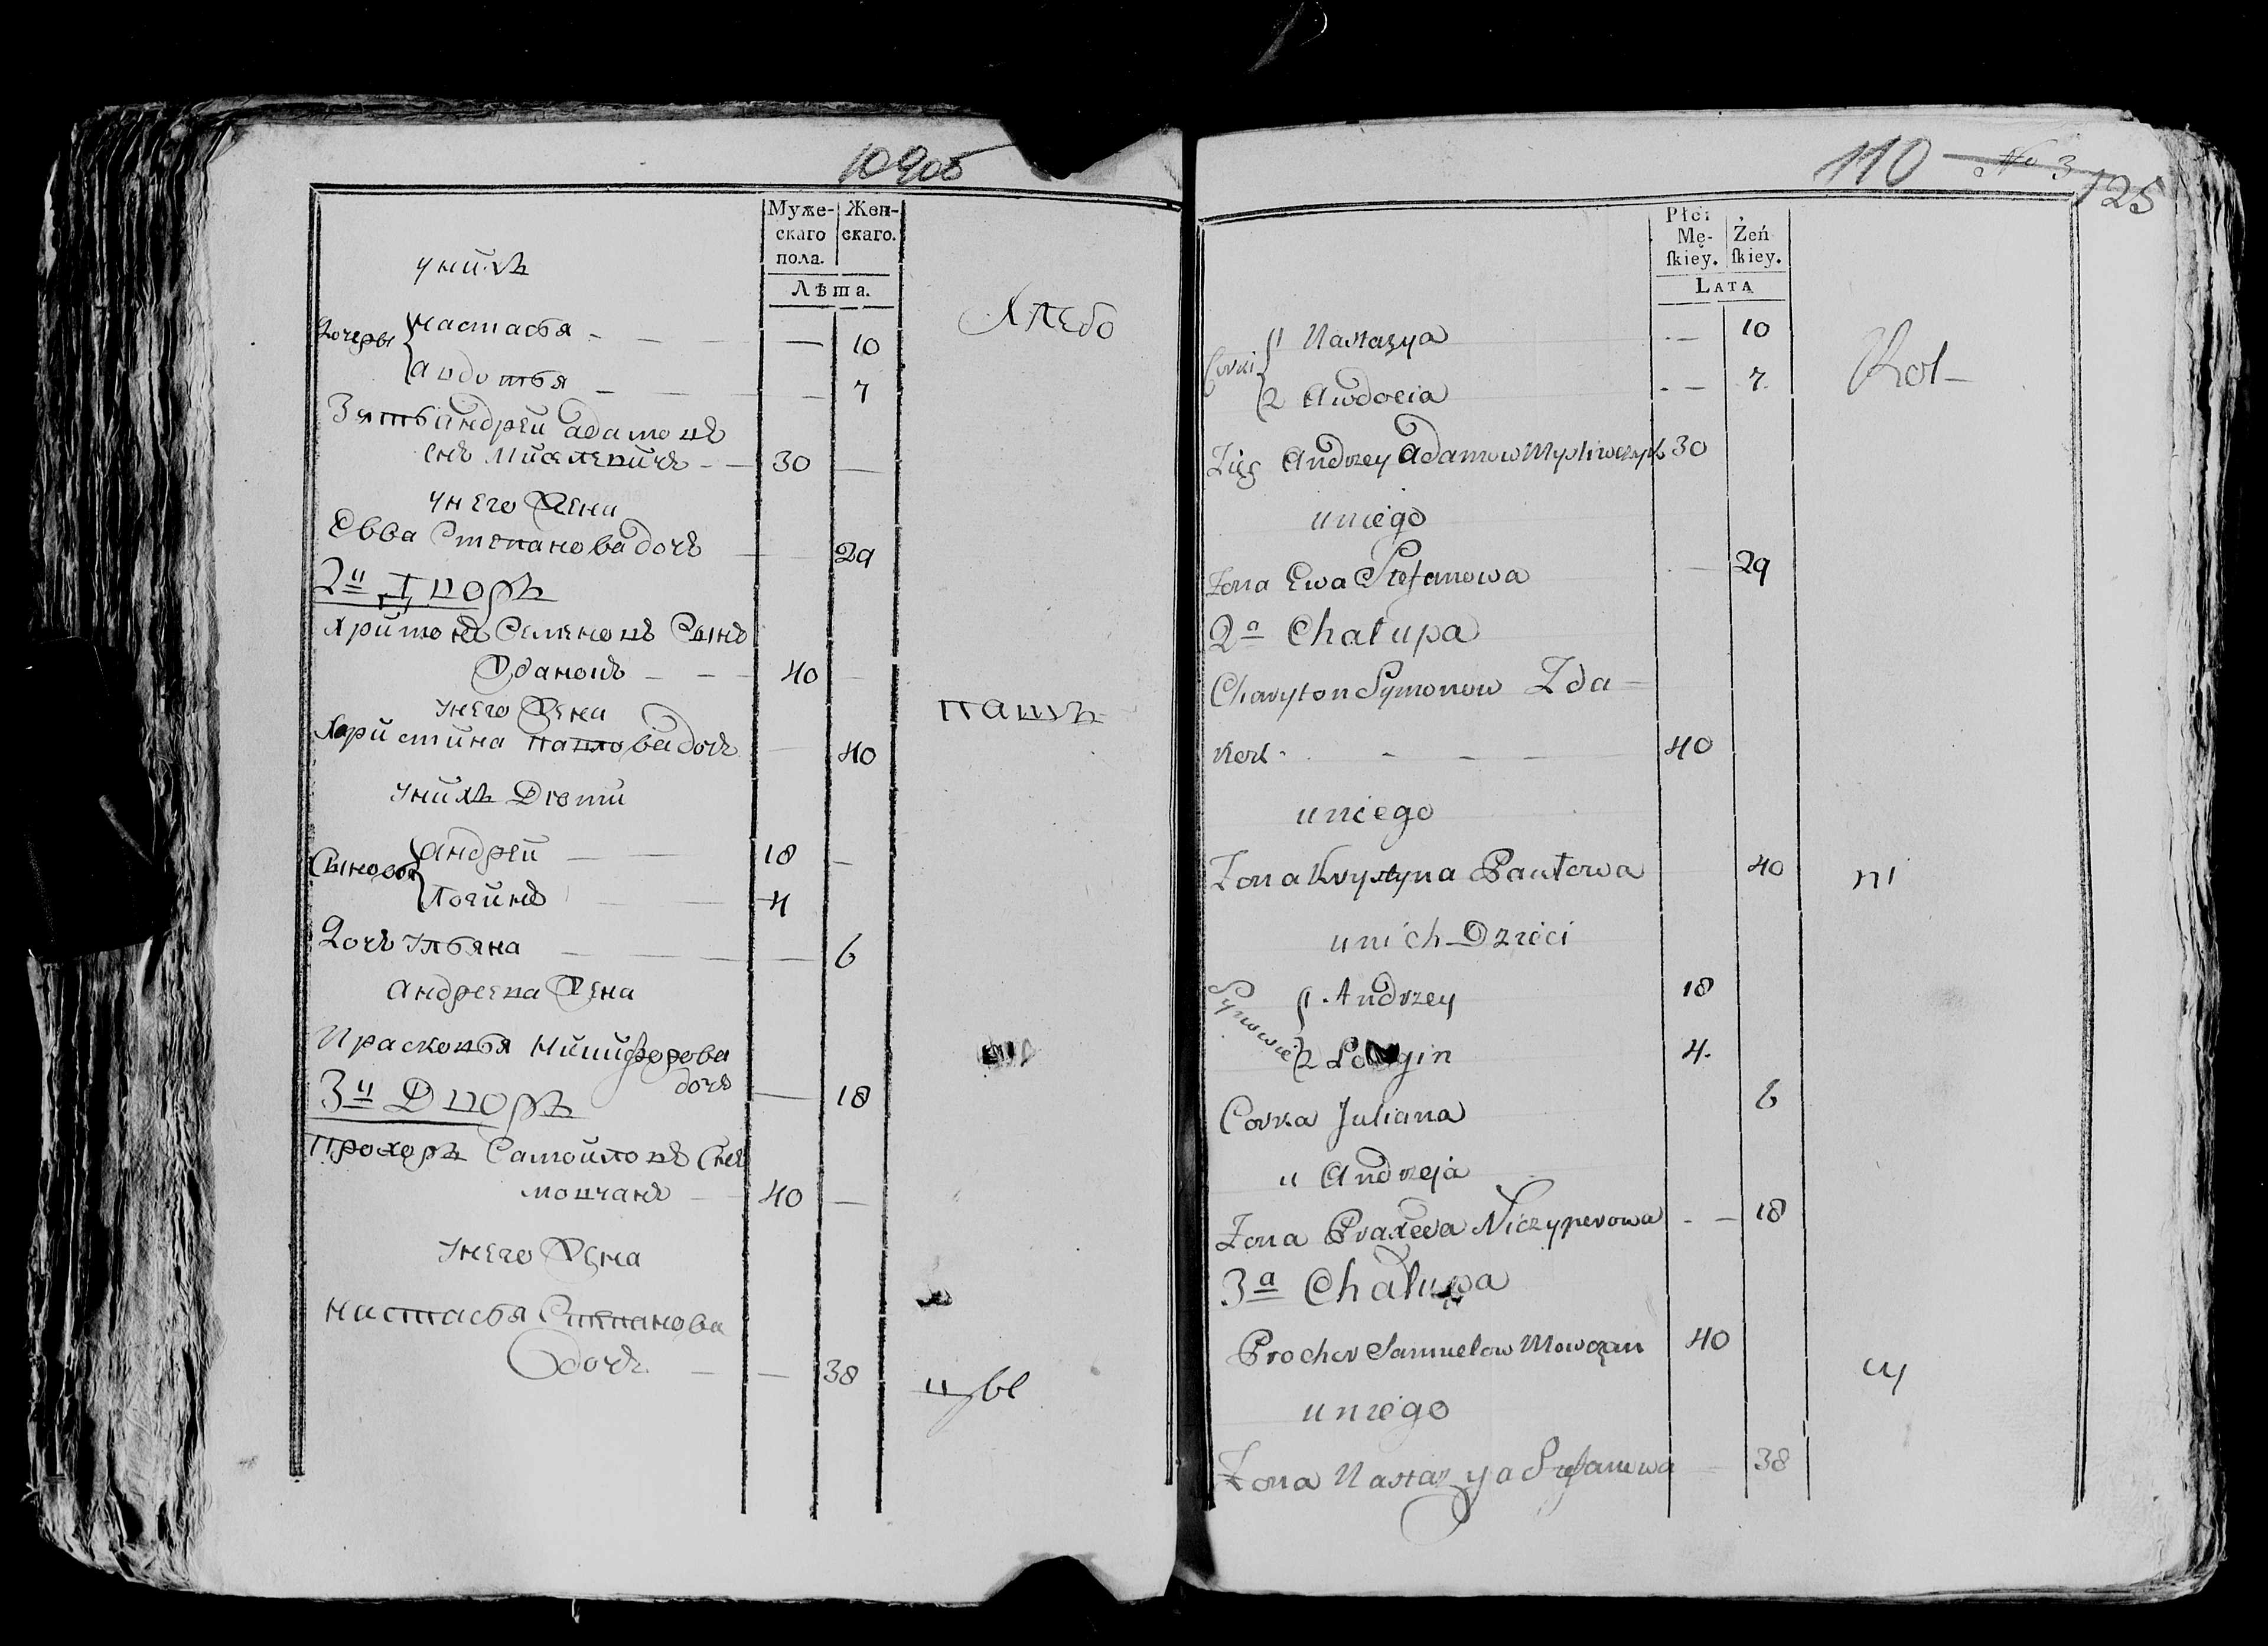 109об
Муже- Жен-
скаго скаго.
пола.
Лѣта.
у нихъ
Хлебо
дочеры
настасья — — — — 10
авдотья — — — — 7
Зять андрей адамовъ
снъ Мислевичъ — — 30 —
у него Жена
Евва Степанова дочь — — 29
2й Дворъ
Харитонъ Семеновъ Сынъ
Жданокъ — — — 40 —
у него Жена
пашъ
Харистина павлова дочь — 40
у нихъ Дѣти
Сыновя
андрей — — 18 —
Логинъ — — — 4
Дочь Ульяна — — — — 6
андреева Жена
Прасковья Ничипорова
дочь — 18
3й Дворъ
Прохоръ Самойловъ Снъ
мовчанъ — 40 —
у него Жена
настасья Степанова
дочь — — 38
110 No 3 125
Płci
Mę- Żeń
ſkiey. ſkiey.
LATA
Corki
1 Nastazya — 10
Rol-
2 Awdocia — 7
Zięć Andrzey Adamow Mysliwczyk 30
u niego
Zona Ewa Stefanowa — 29
2a Chałupa
Charyton Symonow Zda=
nok - — — — 40
u niego
Zona Krystyna Pawłowa 40
ni
u nich Dzieci
Synowie
1. Andrzey 18
2 Longin 4.
Corka Juliana 6
u Andrzeja
Zona Praxeda Niczyperowa — — 18
3a Chałupa
Prochor Samuelow Mowczan 40
cy
u niego
Zona Nastazya Stefanowa — 38